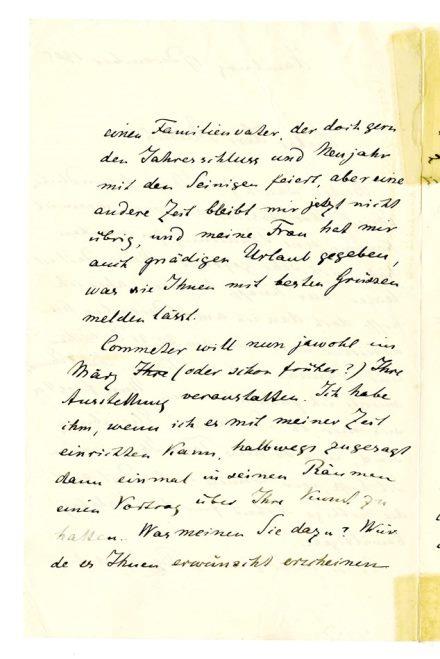 einen Familienvater, der doch gern
den Jahresschluss und Neujahr
mit den Seinigen feiert, aber eine
andere Zeit bleibt mir jetzt nicht
übrig, und meine Frau hat mir
auch gnädigen Urlaub gegeben,
was sie Ihnen mit besten Grüssen
melden lässt.
Commeter will nun jawohl im
März Ihre (oder schon früher?) Ihre
Ausstellung veranstalten. Ich habe
ihm, wenn ich es mit meiner Zeit
einrichten kann, halbwegs zugesagt
dann einmal in seinen Räumen
einen Vortrag über Ihre Kunst zu
halten. Was meinen Sie dazu? Wür
de es Ihnen erwünscht erscheinen